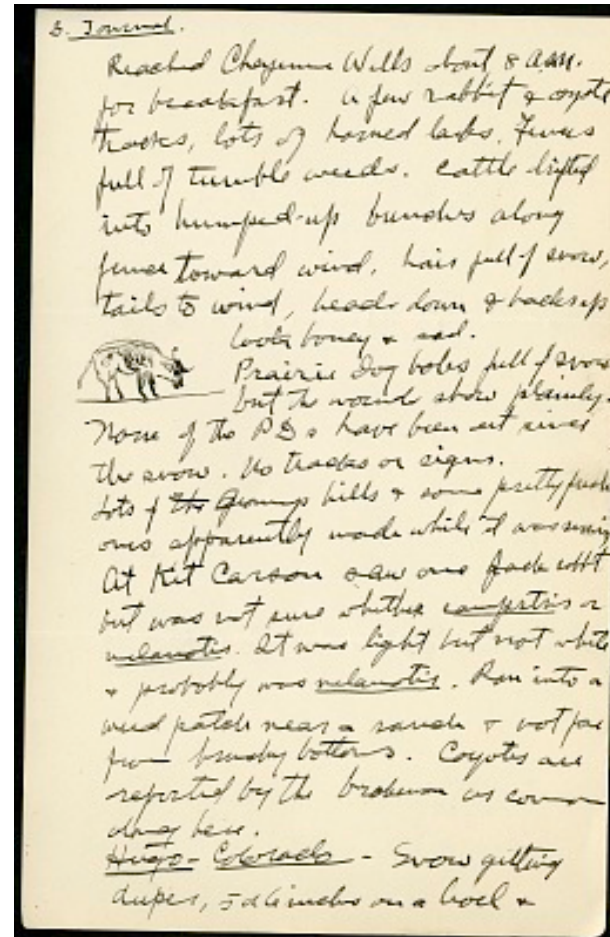 5. Journal.
Reached Cheyenne Wells about 8 a.m.
for breakfast. A few rabbit & coyote
tracks, lots of horned larks. Fences
full of tumble weeds. Cattle drifted
into humped-up bunches along
fence toward wind, hair full of snow,
tails to wind, heads down & backs up
look boney & sad.
Prairie Dog holes full of snow
but the mounds show plainly.
None of the P D s have been out since
the snow. No tracks or signs.
Lots of the Geomys hills & some pretty fresh
ones apparently made while it was snowing
At Kit Carson saw one Jack rabbit
but was not sure whether campestris or
melanotis. It was light but not white
& probably was melanotis. Ran into a
weed patch near a ranch & not far
from brushy bottoms. Coyotes are
reported by the brakeman as common
along here.
Hugo - Colorado - Snow getting
deeper, 5 to 6 inches on a level &